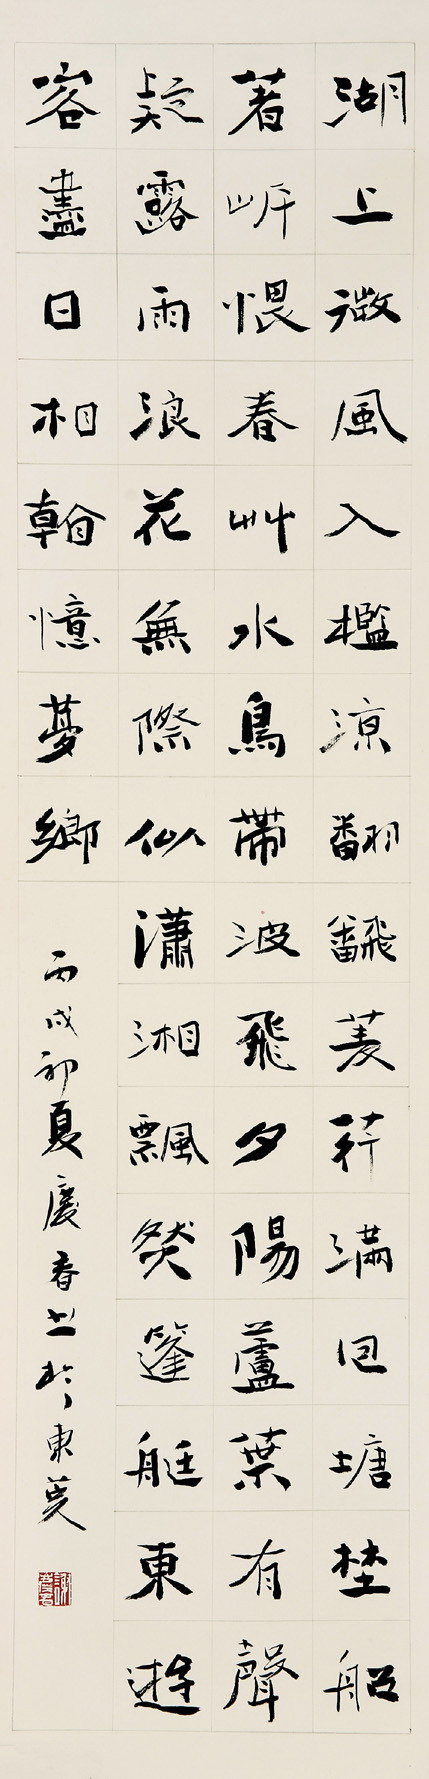 湖上微風入檻涼翻飜菱荇滿回塘埜船
著岍愄春艸水鳥帶波飛夕陽蘆葉有聲
疑露雨浪花無際似瀟湘飄然篷艇東遊
客盡日相看憶夢鄉
丙戌初夏慶春书於東莞